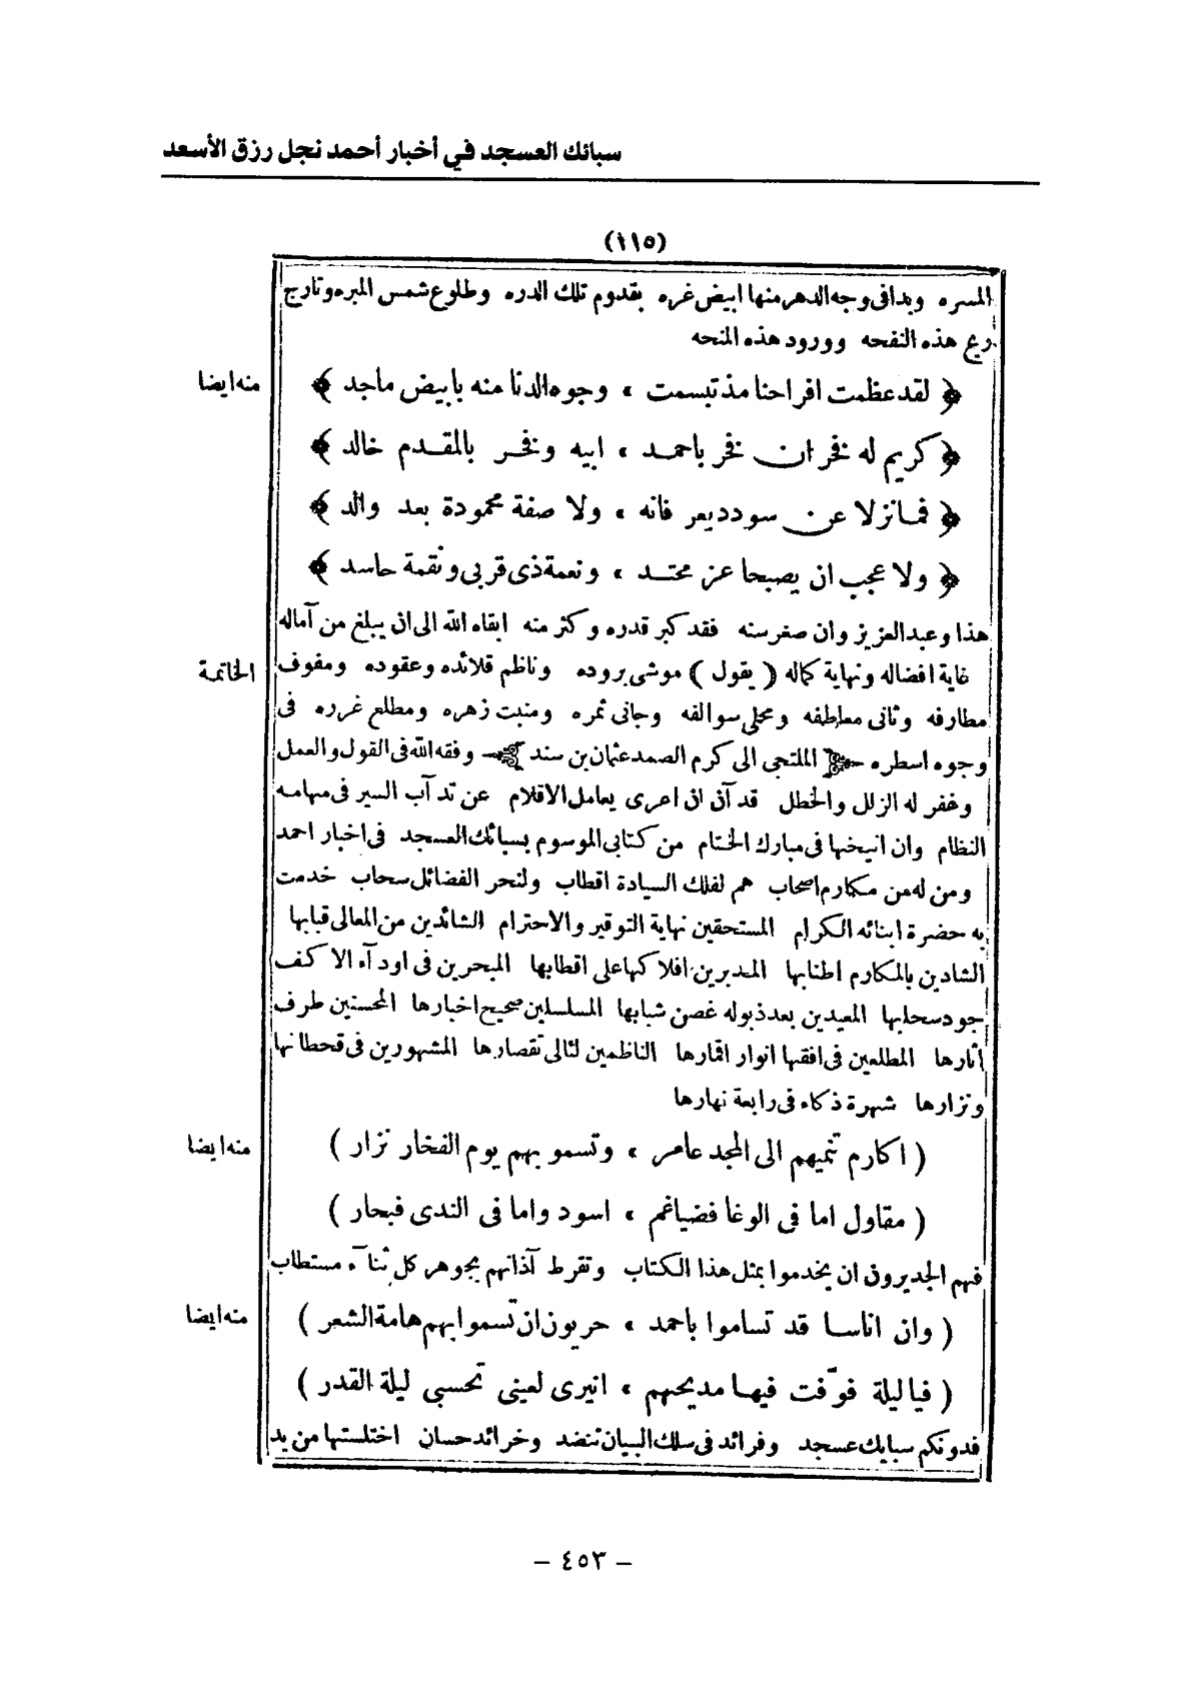 سبائك العسجد في أخبار أحمد نجل رزق الأسعد
(١١٥)
المسره وبدافى وجه الدهر منها ابيض غره بقدوم تلك الدره وطلوع شمس المبره وتارج
ريح هذه النفحه وورود هذه المنحه
منه ايضا
﴿ لقد عظمت افراحنا مذ تبسمت ، وجوه الدنا منه بابيض ماجد ﴾
﴿ كريم له فخر ان فخر باحمد ، ابيه وفخر بالمقدم خالد ﴾
﴿ فما نزلا عن سودد يعر فانه ، ولا صفة محمودة بعد والد ﴾
﴿ ولا عجب ان يصبحا عز محتد ، ونعمة ذى قربى ونقمة حاسد ﴾
هذا وعبد العزيز وان صغر سنه فقد كبر قدره وكثر منه ابقاه الله الى ان يبلغ من آماله
الخاتمة
غاية افضاله ونهاية كماله ( يقول ) موشى بروده وناظم قلائده وعقوده ومفوف
مطارفه وثانى معاطفه ومحلى سوالفه وجانى ثمره ومنبت زهره ومطلع غرره فى
وجوه اسطره الملتجى الى كرم الصمد عثمان بن سند وفقه الله فى القول والعمل
وغفر له الزلل والخطل قد آن ان اعرى يعامل الاقلام عن تدآب السير فى مهامه
النظام وان انيخها فى مبارك الختام من كتابى الموسوم بسبائك العسجد فى اخبار احمد
ومن له من مكارم اصحاب هم لفلك السيادة اقطاب ولنحر الفضائل سحاب خدمت
به حضرة ابنائه الكرام المستحقين نهاية التوقير والاحترام الشائدين من المعالى قبابها
الشادين بالمكارم اطنابها المديرين افلاكها على اقطابها المبحرين فى اودآء الاكف
جود سحابها المعيدين بعد ذبوله غصن شبابها المسلسلين صحيح اخبارها المحسنين طرف
آثارها المطلعين فى افقها انوار اقمارها الناظمين لئالى تقصارها المشهورين فى قحطانها
ونزارها شهرة ذكاء فى رابعة نهارها
منه ايضا
( اكارم تنميهم الى المجد عامر ، وتسمو بهم يوم الفخار نزار )
( مقاول اما فى الوغا فضياغم ، اسود واما فى الندى فبحار )
فهم الجديرون ان يخدموا بمثل هذا الكتاب وتقرط آذانهم بجوهر كل ثنآء مستطاب
منه ايضا
( وان اناسا قد تساموا باحمد ، حريون ان تسموا بهم هامة الشعر )
( فيا ليلة فوّفت فيها مديحهم ، انيرى لعينى تحسبى ليلة القدر )
فدونكم سبايك عسجد وفرائد فى سلك البيان تنضد وخرائد حسان اختلستها من يد
– ٤٥٣ –